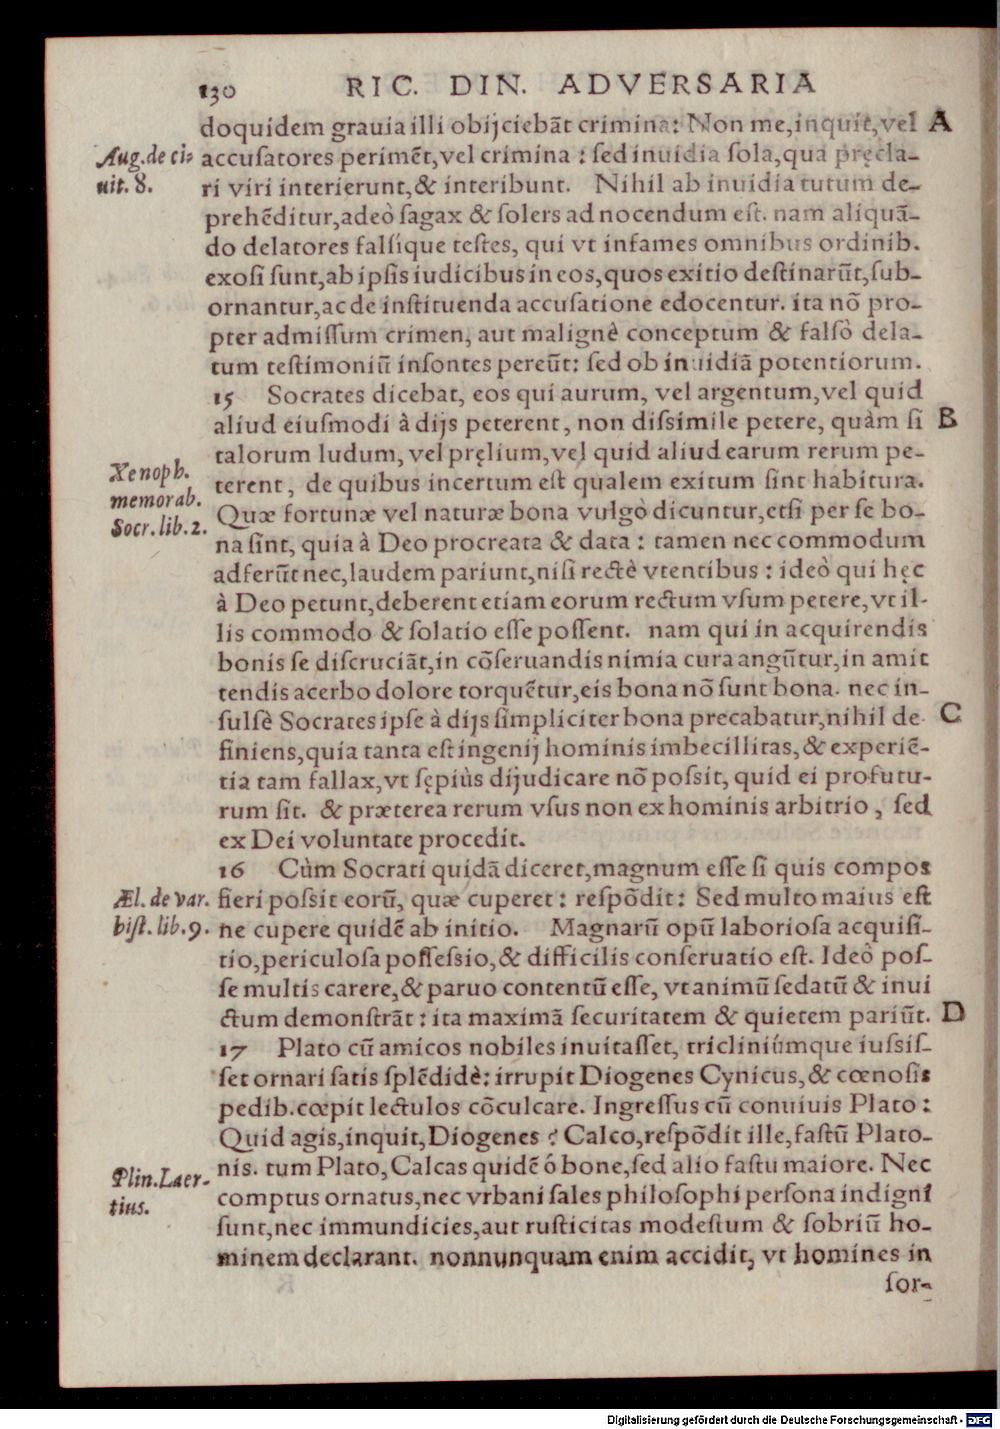 130 RIC. DIN. ADVERSARIA
doquidem grauia illi obijciebãt crimina: Non me,inquit,vel A
Aug.de ci- accuſatores perimẽt,vel crimina : ſed inuidia ſola,qua pręcla-
uit. 8. ri viri interierunt,& interibunt. Nihil ab inuidia tutum de-
prehẽditur,adeò ſagax & ſolers ad nocendum eſt. nam aliquã-
do delatores falſique teſtes, qui vt infames omnibus ordinib.
exoſi ſunt,ab ipſis iudicibus in eos,quos exitio deſtinarũt,ſub-
ornantur,ac de inſtituenda accuſatione edocentur. ita nõ pro-
pter admiſſum crimen, aut malignè conceptum & falſò dela-
tum teſtimoniũ inſontes pereũt: ſed ob inuidiã potentiorum.
15 Socrates dicebat, eos qui aurum, vel argentum,vel quid
aliud eiuſmodi à dijs peterent, non diſsimile petere, quàm ſi B
talorum ludum, vel pręlium,vel quid aliud earum rerum pe-
Xenoph. terent, de quibus incertum eſt qualem exitum ſint habitura.
memorab. Quæ fortunæ vel naturæ bona vulgò dicuntur,etſi per ſe bo-
Socr. lib. 2. na ſint, quia à Deo procreata & data : tamen nec commodum
adferũt nec,laudem pariunt,niſi rectè vtentibus : ideò qui hęc
à Deo petunt,deberent etiam eorum rectum vſum petere,vt il-
lis commodo & ſolatio eſſe poſſent. nam qui in acquirendis
bonis ſe diſcruciãt,in cõſeruandis nimia cura angũtur,in amit
tendis acerbo dolore torquẽtur,eis bona nõ ſunt bona. nec in-
ſulſè Socrates ipſe à dijs ſimpliciter bona precabatur,nihil de- C
finiens,quia tanta eſt ingenij hominis imbecillitas,& experiẽ-
tia tam fallax,vt ſępiùs dijudicare nõ poſsit, quid ei profutu-
rum ſit. & præterea rerum vſus non ex hominis arbitrio, ſed
ex Dei voluntate procedit.
16 Cùm Socrati quidã diceret,magnum eſſe ſi quis compos
Æl. de var. fieri poſsit eorũ, quæ cuperet : reſpõdit: Sed multo maius eſt
hiſt. lib. 9. ne cupere quidẽ ab initio. Magnarũ opũ laborioſa acquiſi-
tio,periculoſa poſſeſsio,& difficilis conſeruatio eſt. Ideò poſ-
ſe multis carere,& paruo contentũ eſſe, vt animũ ſedatũ & inui
ctum demonſtrãt : ita maximã ſecuritatem & quietem pariũt. D
17 Plato cũ amicos nobiles inuitaſſet, tricliniúmque iuſsiſ-
ſet ornari ſatis ſplẽdidè: irrupit Diogenes Cynicus,& cœnoſis
pedib.cœpit lectulos cõculcare. Ingreſſus cũ conuiuis Plato :
Quid agis,inquit,Diogenes ? Calco,reſpõdit ille,faſtũ Plato-
Plin.Laer- nis. tum Plato, Calcas quidẽ ó bone,ſed alio faſtu maiore. Nec
tius. comptus ornatus,nec vrbani ſales philoſophi perſona indigni
ſunt,nec immundicies,aut ruſticitas modeſtum & ſobriũ ho-
minem declarant. nonnunquam enim accidit, vt homines in
ſor-
Digitalisierung gefördert durch die Deutsche Forschungsgemeinschaft - DFG